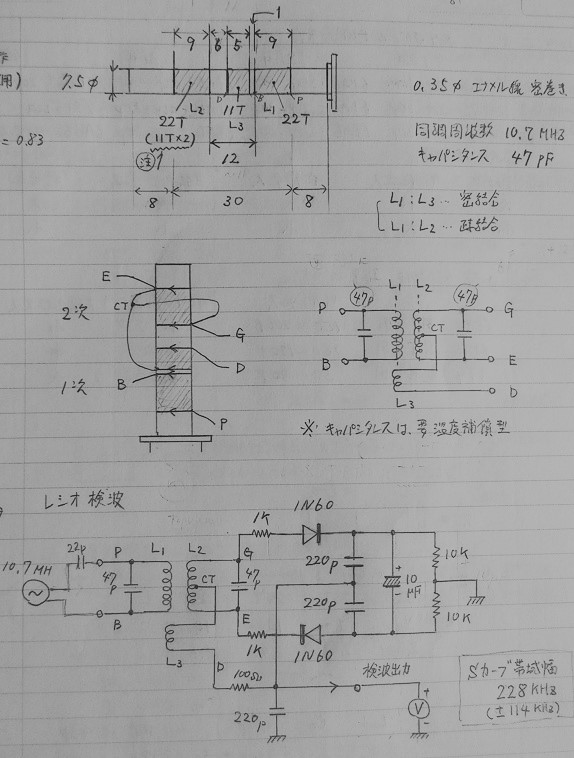 1
9 6 5 9
用)
7.5φ
0.35φ エナメル線 密巻き
D B P
L2 11T L1
22T L3 22T
(11T×2)
= 0.83
注
12
同調周波数 10.7MHz
キャパシタンス 47pF
8 30 8
L1:L3… 密結合
L1:L2… 疎結合
E
CT
2次
G
D
1次
B
P
L1 L2
47p 47p
P G
CT
B E
D
L3
※ キャパシタンスは、要温度補償型
レシオ検波
1N60
1K
22p P L1 L2 G
10.7MH
220p 10K
47p CT 47p
10μF
+
-
220p
B E
10K
1K 1N60
L3
D 100Ω 検波出力
220p
+
V
-
Sカーブ帯域幅
228KHz
(±114KHz)